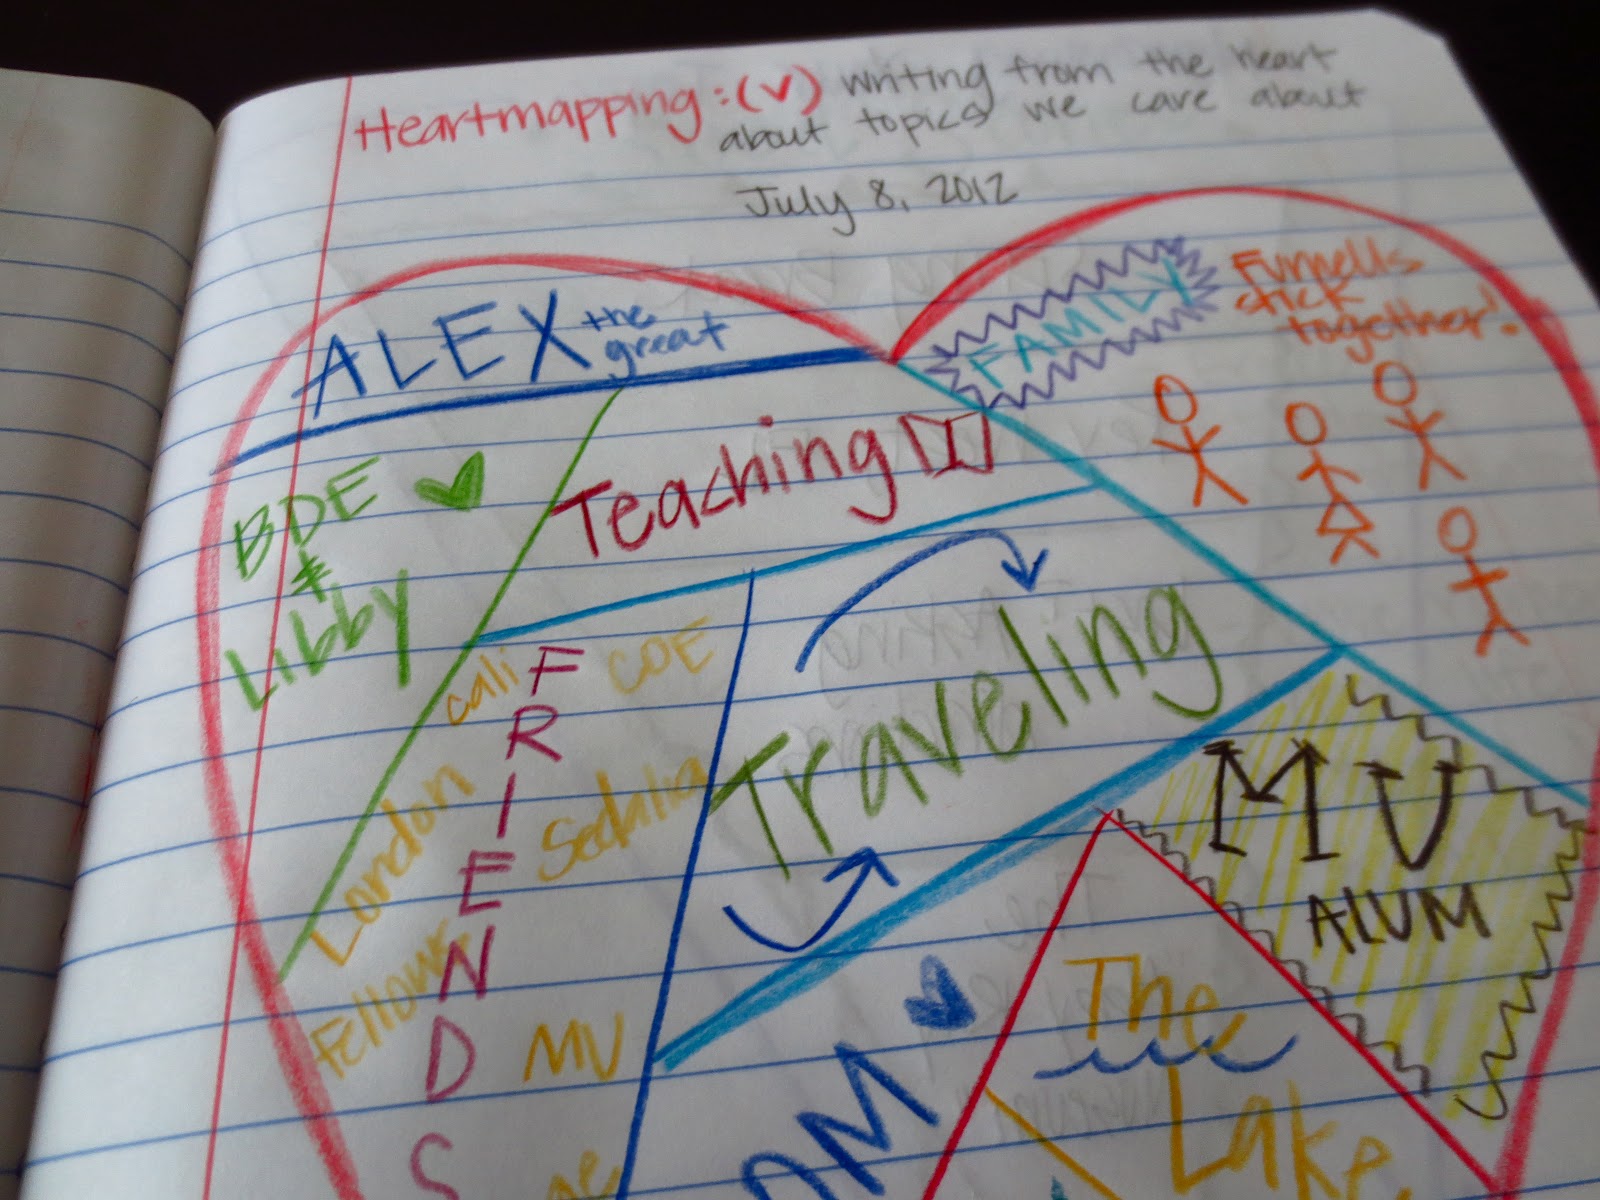 Heartmapping: (v) writing from the heart
about topics we care about
July 8, 2012
ALEX the great
FAMILY
Funnells
stick
together!
BDE
&
Libby
Teaching
Traveling
FRIENDS
Cali
COE
London
Sedalia
Fellows
MU
MU
ALUM
The
Lake